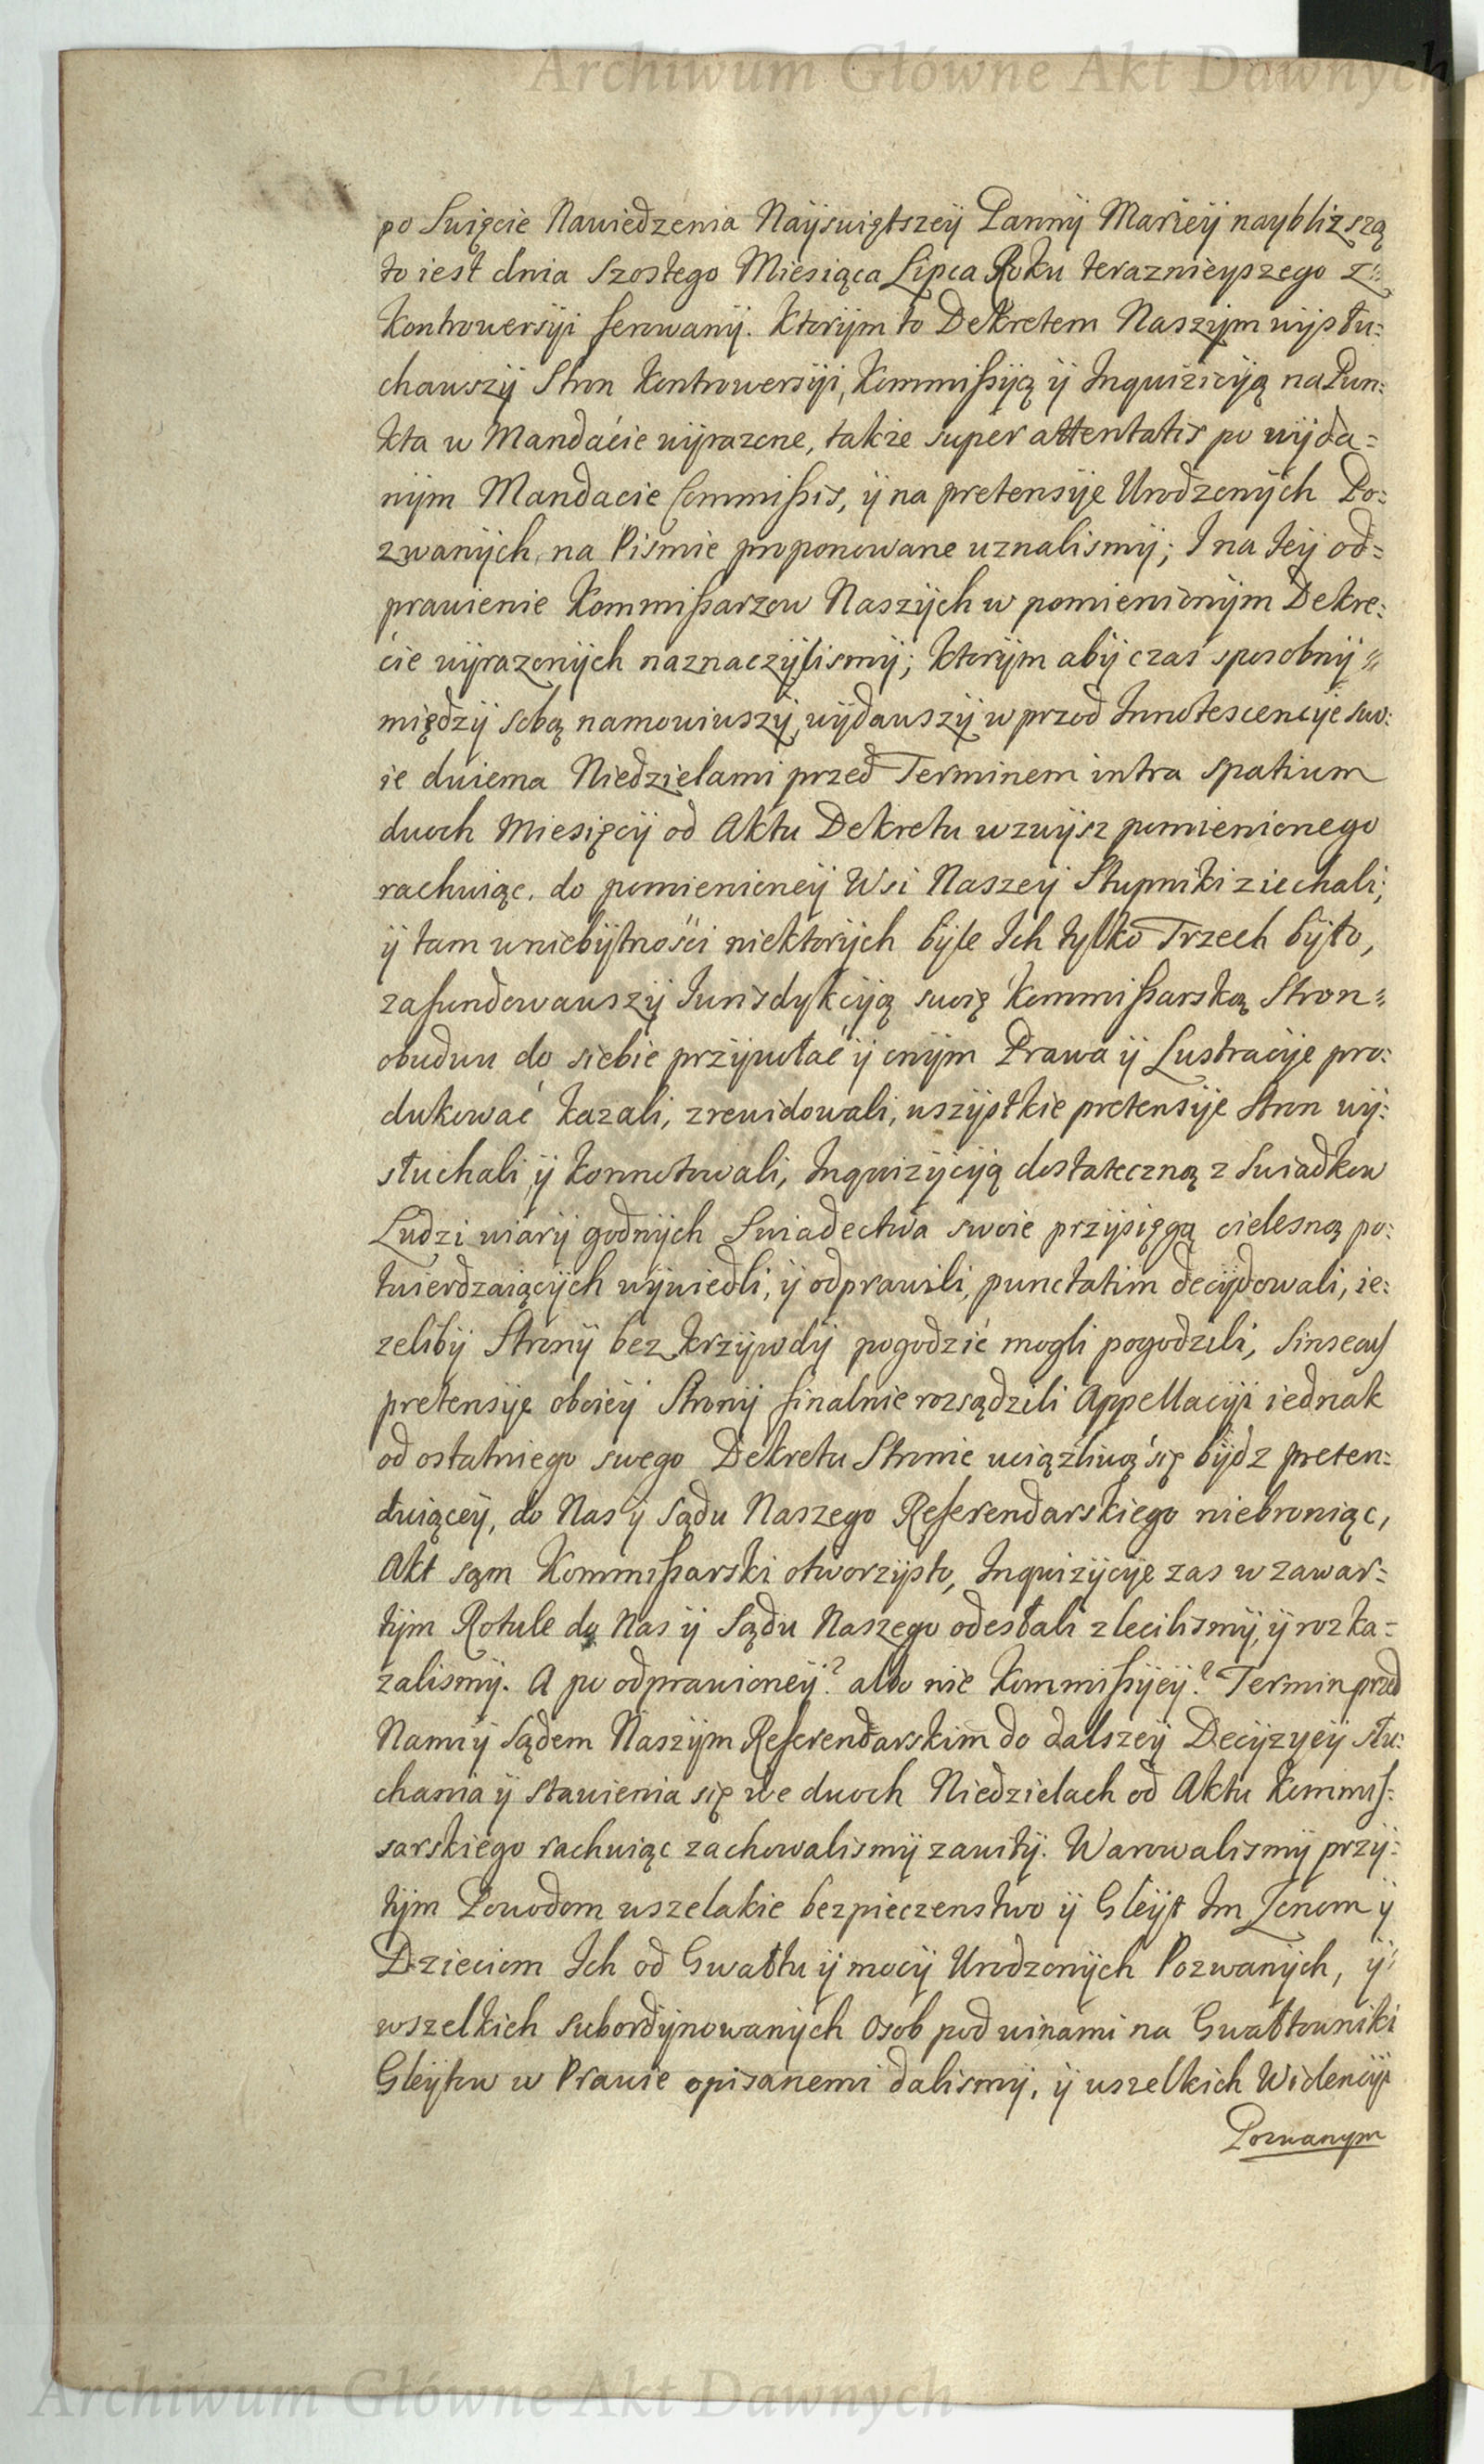 Archiwum Główne Akt Dawnych
po Swięcie Nawiedzenia Nayswiętszey Panny Mariey naybliższą
to iest dnia szostego Miesiąca Lipca Roku teraznieyszego z:
Kontrowersyi ferowany. Ktorym to Dekretem Naszym wysłu:
chawszy Stron Kontrowersyi, Kommissyą y Inquizicyą na Pun:
kta w Mandacie wyrazone, także super attentatis po wyda=
nym Mandacie Commissis, y na pretensye Urodzonych Po:
zwanych, na Pismie proponowane uznalismy; I na Jey od=
prawienie Kommissarzow Naszych w pomienionym Dekre:
cie wyrazonych naznaczylismy; Ktorym aby czas sposobny =
między sobą namowiwszy, wydawszy w przod Innotescencye swo:
ie dwiema Niedzielami przed Terminem intra spatium
dwoch Miesięcy od Aktu Dekretu wzwysz pomienionego
rachuiąc, do pomienioney Wsi Naszey Stupniki ziechali;
y tam w niebytności niektorych byle Ich tylko Trzech było,
zafundowawszy Jurisdykcyą swoię Kommissarską Stron=
obudwu do siebie przywołać y onym Prawa y Lustracye pro:
dukować kazali, zrewidowali, wszystkie pretensye Stron wy:
słuchali, y konnotowali, Inquizycyą dostateczną z Swiadkow
Ludzi wiary godnych Swiadectwa swoie przysięgą cielesną po:
twierdzaiących wywiedli, y odprawili, punctatim decydowali, ie:
zeliby Strony bez krzywdy pogodzić mogli pogodzili, Sinsecus
pretensye oboiey Strony finalnie rozsądzili Appellacyi iednak
od ostatniego swego Dekretu Stronie uciążliwą się bydz preten:
duiącey, do Nas y Sądu Naszego Referendarskiego niebroniąc,
Akt sąm Kommissarski otworzysto, Inquizycye zas w zawar:
tym Rotule do Nas y Sądu Naszego odesłali zlecilismy, y rozka=
zalismy. A po odprawioney? albo nie Kommissyey? Termin przed
Nami y Sądem Naszym Referendarskim do dalszey Decyzyey słu:
chania y stawienia się we dwoch Niedzielach od Aktu Kommis:
sarskiego rachuiąc zachowalismy zawity. Warowalismy przy:
tym Powodom wszelakie bezpieczenstwo y Gleyt Im Zonom y
Dzieciom Ich od Gwałtu y mocy Urodzonych Pozwanych, y
wszelkich subordynowanych Osob pod winami na Gwałtowniki
Gleytow w Prawie opisanemi dalismy, y wszelkich Widencyi
Pozwanym
Archiwum Główne Akt Dawnych